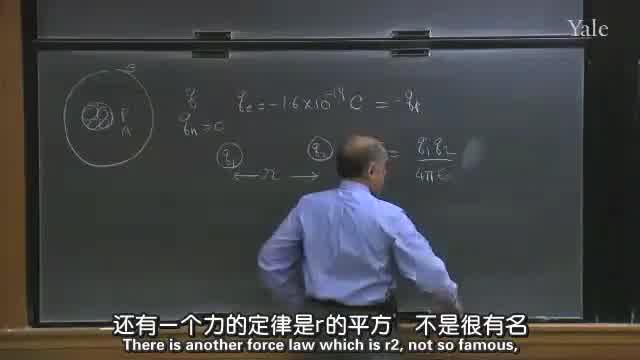 Yale
e
P
n
q
q_e = -1.6 × 10^-19 C = -q_p
q_n = 0
q_1
q_2
r
= q_1 q_2
4π ε
还有一个力的定律是r的平方 不是很有名
There is another force law which is r2, not so famous,